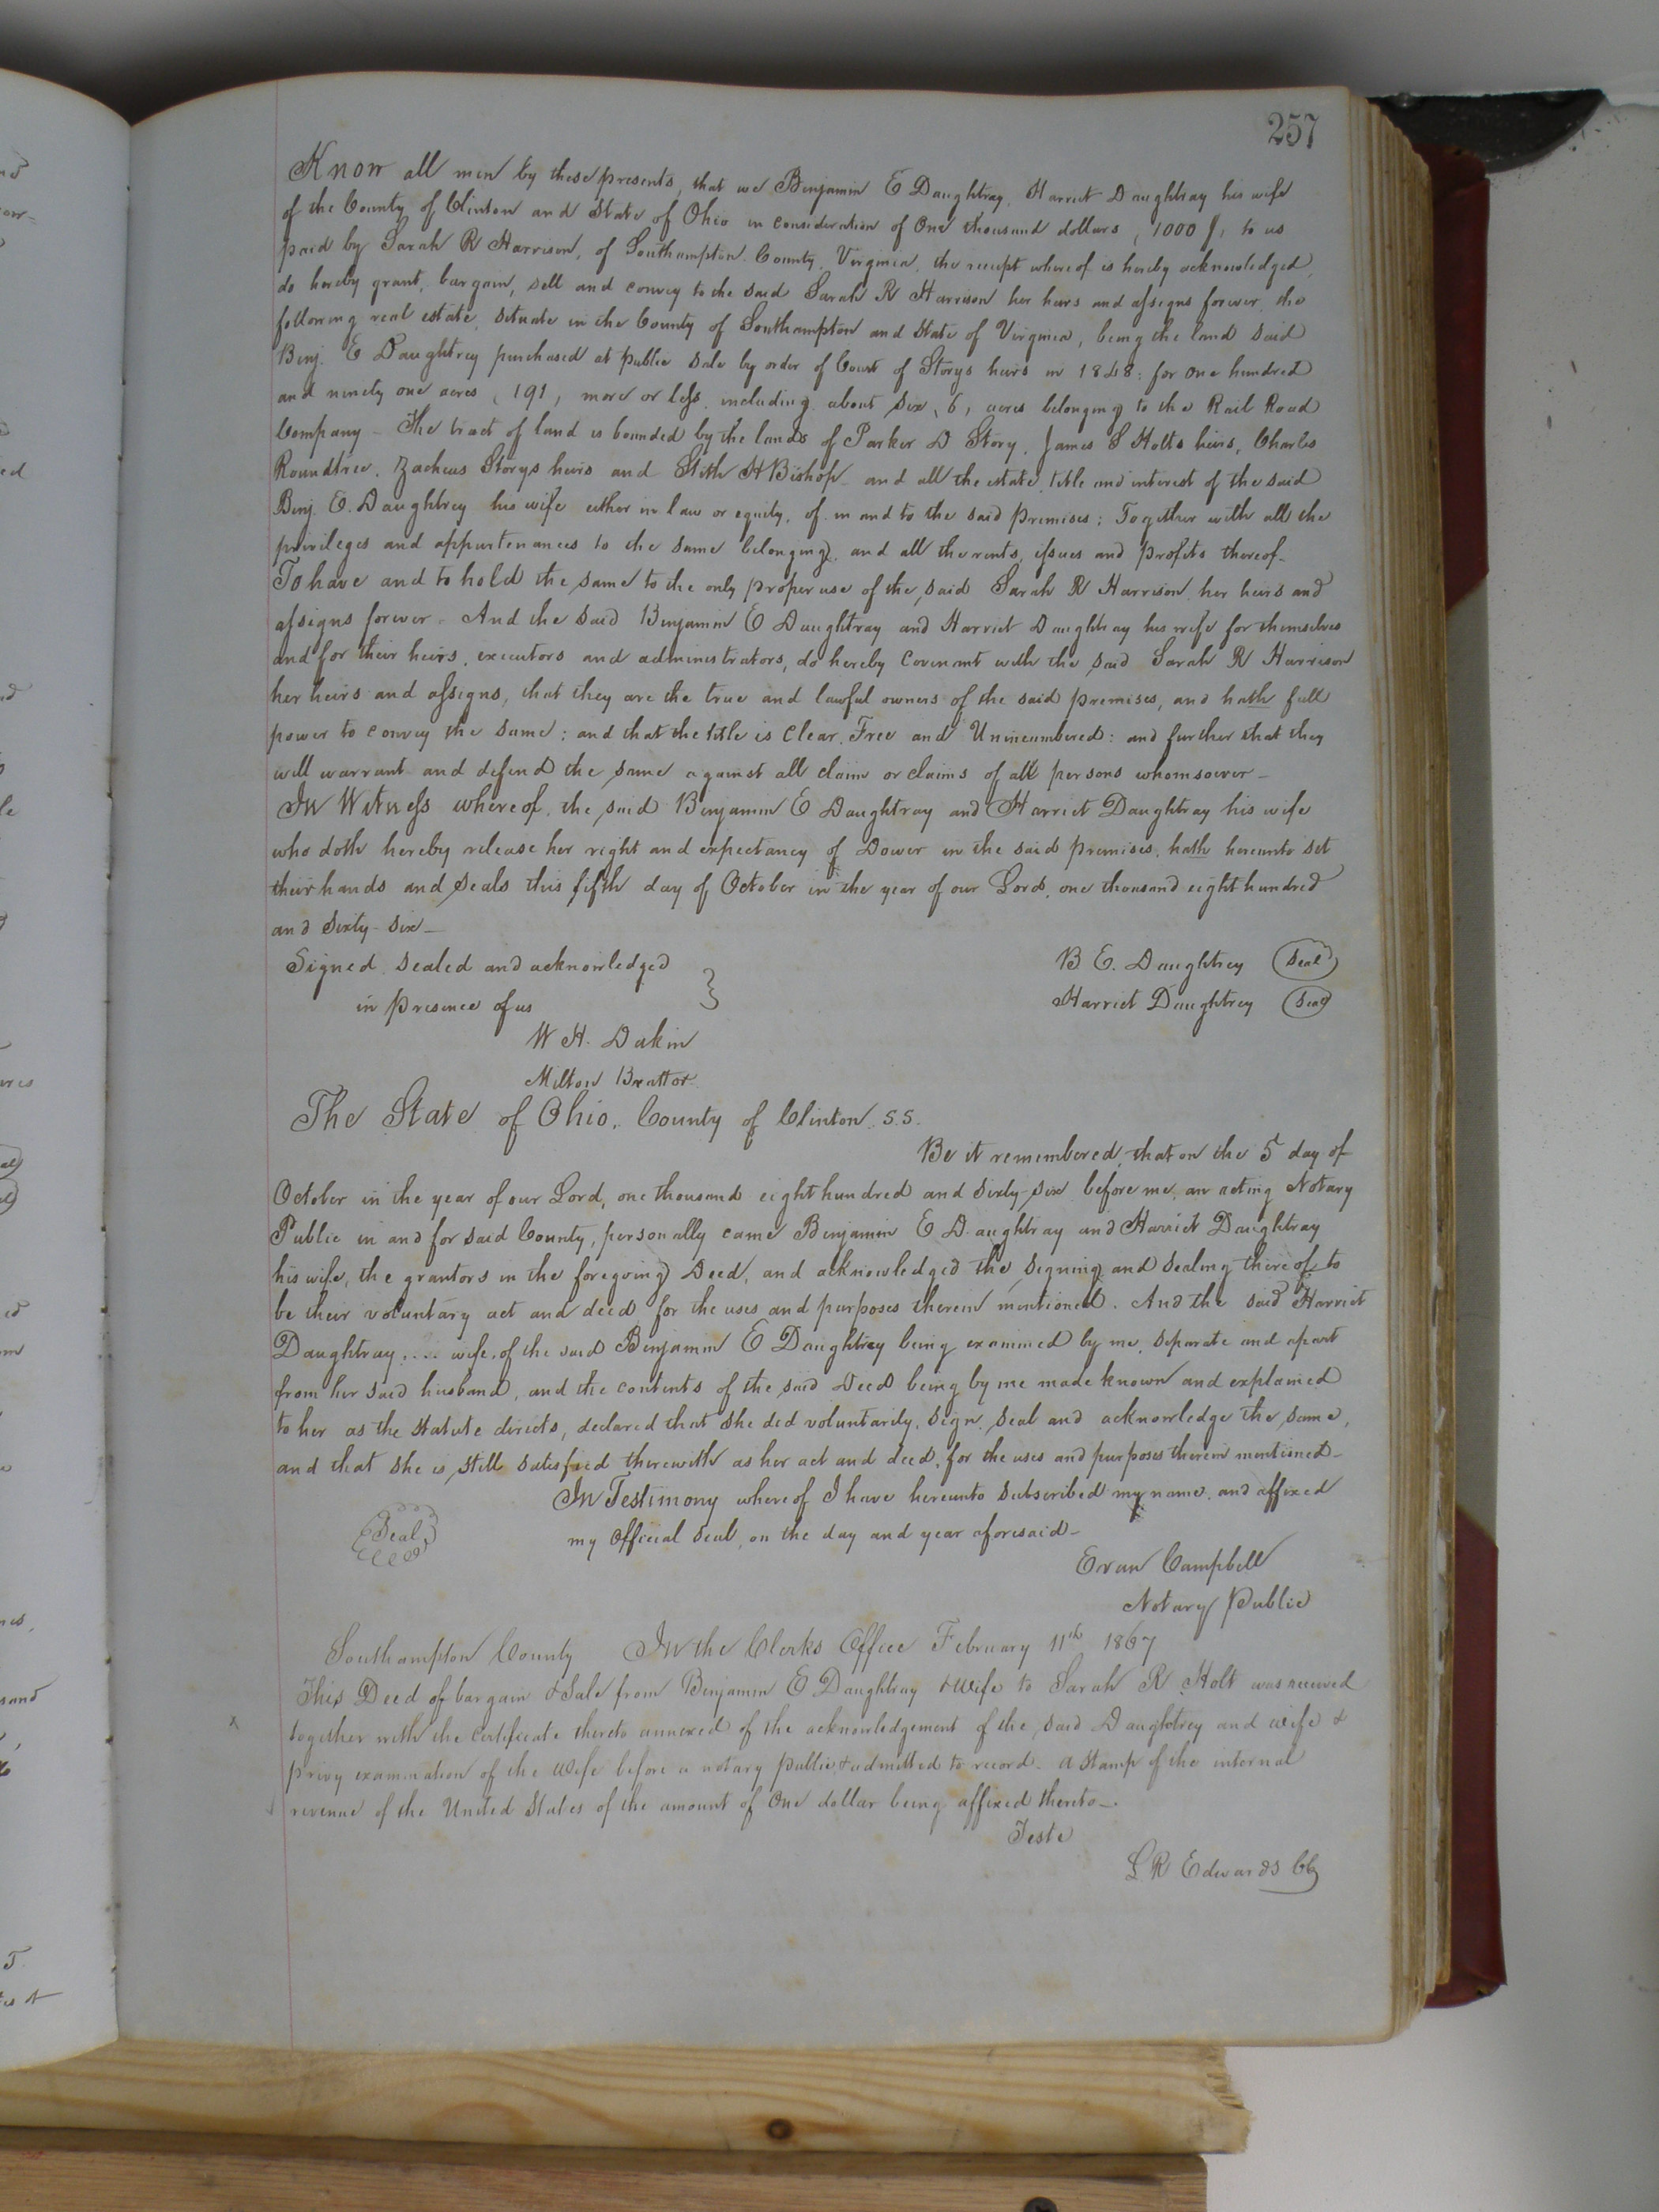 257
Know all men by these presents, that we Benjamin E Daughtray, Harriet Daughtray his wife
of the County of Clinton and State of Ohio in consideration of One thousand dollars, (1000 $) to us
paid by Sarah R Harrison, of Southampton County, Virginia, the receipt whereof is hereby acknowledged,
do hereby grant, bargain, sell and convey to the said Sarah R Harrison her heirs and assigns forever, the
following real estate, situate in the County of Southampton and State of Virginia, being the land said
Benj. E Daughtrey purchased at public sale by order of Court of Storys heirs in 1848: for one hundred
and ninety one acres (191) more or less, including about six (6) acres belonging to the Rail Road
Company - The tract of land is bounded by the lands of Parker D Story, James S Holts heirs, Charles
Roundtree, Zacheus Storys heirs and Stith H Bishop - and all the estate, title and interest of the said
Benj. E. Daughtrey his wife either in law or equity, of in and to the said premises; Together with all the
privileges and appurtenances to the same belonging, and all the rents, issues and profits thereof -
To have and to hold the same to the only proper use of the said Sarah R Harrison, her heirs and
assigns forever - And the said Benjamin E Daughtray and Harriet Daughtray his wife for themselves
and for their heirs, executors and administrators, do hereby Covenant with the said Sarah R Harrison
her heirs and assigns, that they are the true and lawful owners of the said premises, and hath full
power to convey the same; and that the title is Clear, Free and Unincumbered: and further that they
will warrant and defend the same against all claim or claims of all persons whomsoever -
In Witness whereof, the said Benjamin E Daughtray and Harriet Daughtray his wife
who doth hereby release her right and expectancy of Dower in the said premises, hath hereunto set
their hands and seals this fifth day of October in the year of our Lord, one thousand eight hundred
and sixty-six -
Signed, sealed and acknowledged
in presence of us
B E. Daughtrey Seal
Harriet Daughtrey Seal
W H. Dakin
Milton
The State of Ohio, County of Clinton S.S.
Be it remembered, that on the 5 day of
October in the year of our Lord, one thousand eight hundred and sixty-six before me, an acting Notary
Public in and for said County, personally came Benjamin E Daughtray and Harriet Daughtray
his wife, the grantors in the foregoing Deed, and acknowledged the signing and sealing thereof to
be their voluntary act and deed for the uses and purposes therein mentioned. And the said Harriet
Daughtray .... wife, of the said Benjamin E Daughtrey being examined by me, separate and apart
from her said husband, and the contents of the said Deed being by me made known and explained
to her as the statute directs, declared that she did voluntarily, sign, seal and acknowledge the same,
and that she is still satisfied therewith as her act and deed, for the uses and purposes therein mentioned -
In Testimony whereof I have hereunto subscribed my name, and affixed
Seal my Official Seal, on the day and year aforesaid -
Evan Campbell
Notary Public
Southampton County In the Clerks Office February 11th 1867
This Deed of bargain & Sale from Benjamin E Daughtray & Wife to Sarah R Holt was received
together with the certificate thereto annexed of the acknowledgement of the said Daughtrey and wife &
privy examination of the Wife before a notary public & admitted to record - a Stamp of the internal
revenue of the United States of the amount of One dollar being affixed thereto -
Teste
L R Edwards CC